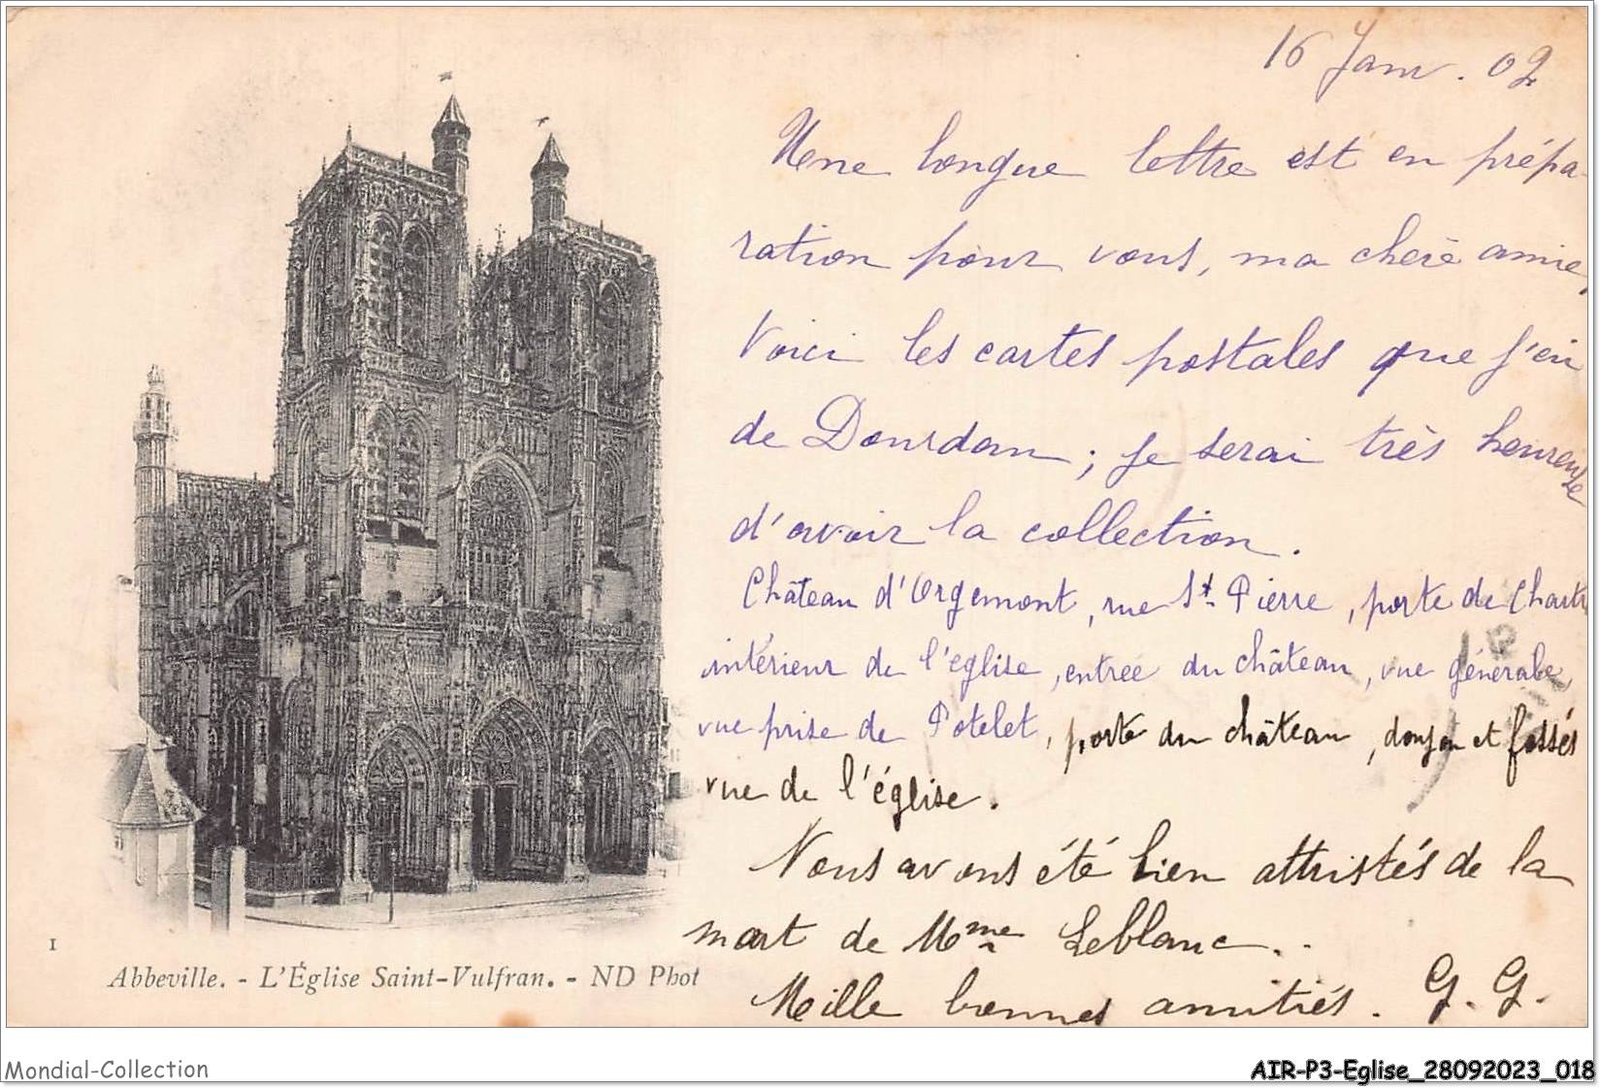 16 Janv. 02
Une longue lettre est en prépa-
ration pour vous, ma chère amie,
Voici les cartes postales que j'ai
de Dourdan ; je serai très heureuse
d'avoir la collection.
Château d'Orgemont, rue St. Pierre, porte de Chartr
intérieur de l'église, entrée du château, vue générale,
vue prise de Potelet, porte du château, donjon et fossés
vue de l'église.
Nous avons été bien attristés de la
mort de Mme Leblanc..
Mille bonnes amitiés. G. G.
1
Abbeville. - L'Église Saint-Vulfran. - ND Phot
Mondial-Collection
AIR-P3-Eglise_28092023_018